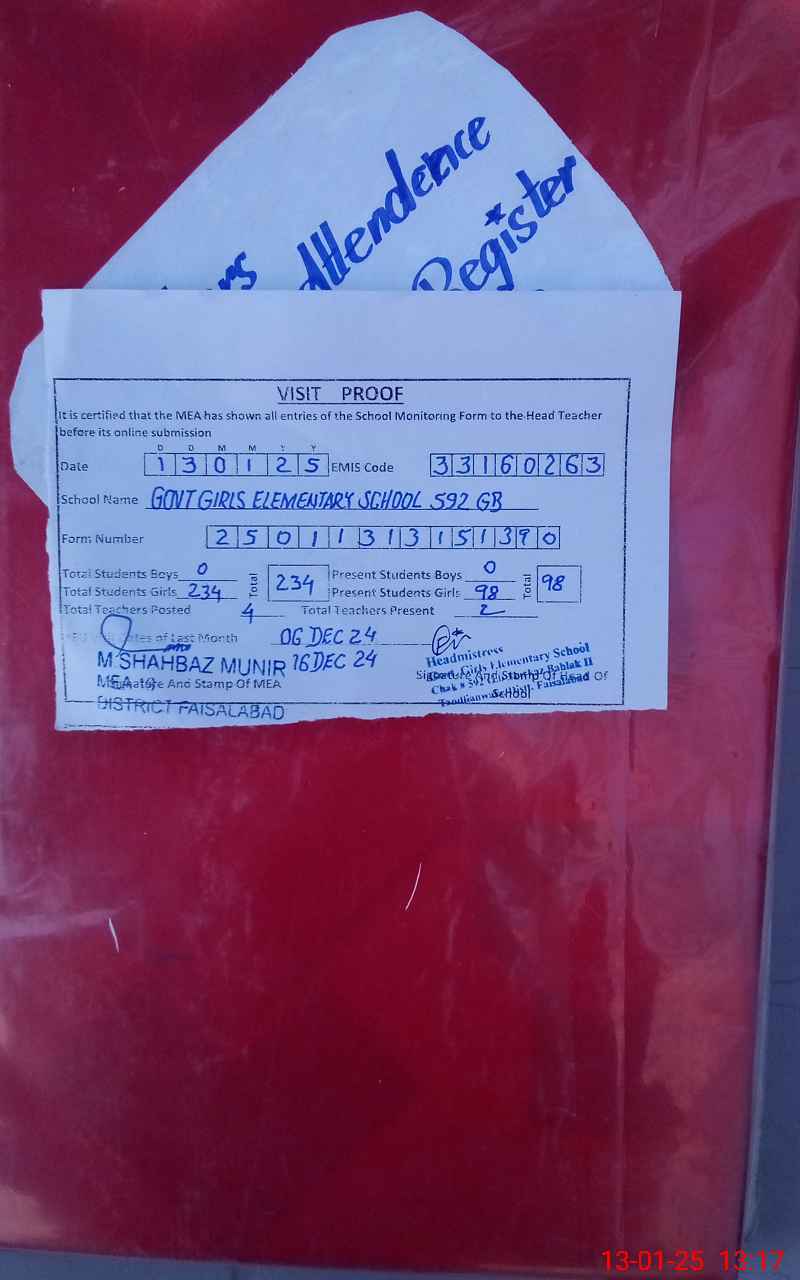 Attendence
Register
VISIT PROOF
It is certified that the MEA has shown all entries of the School Monitoring Form to the Head Teacher
before its online submission
D D M M Y Y
Date 1 3 0 1 2 5 EMIS Code 3 3 1 6 0 2 6 3
School Name GOVT GIRLS ELEMENTARY SCHOOL 592 GB
Form Number 2 5 0 1 1 3 1 3 1 5 1 3 9 0
Total Students Boys 0 Total 234 Present Students Boys 0 Total 98
Total Students Girls 234 Present Students Girls 98
Total Teachers Posted 4 Total Teachers Present 2
Dates of Last Month 06 DEC 24
16 DEC 24
M.SHAHBAZ MUNIR
MEA
And Stamp Of MEA
DISTRICT FAISALABAD
Headmistress
Govt. Girls Elementary School
And Stamp Of Head Of
School
Faisalabad
13-01-25 13:17